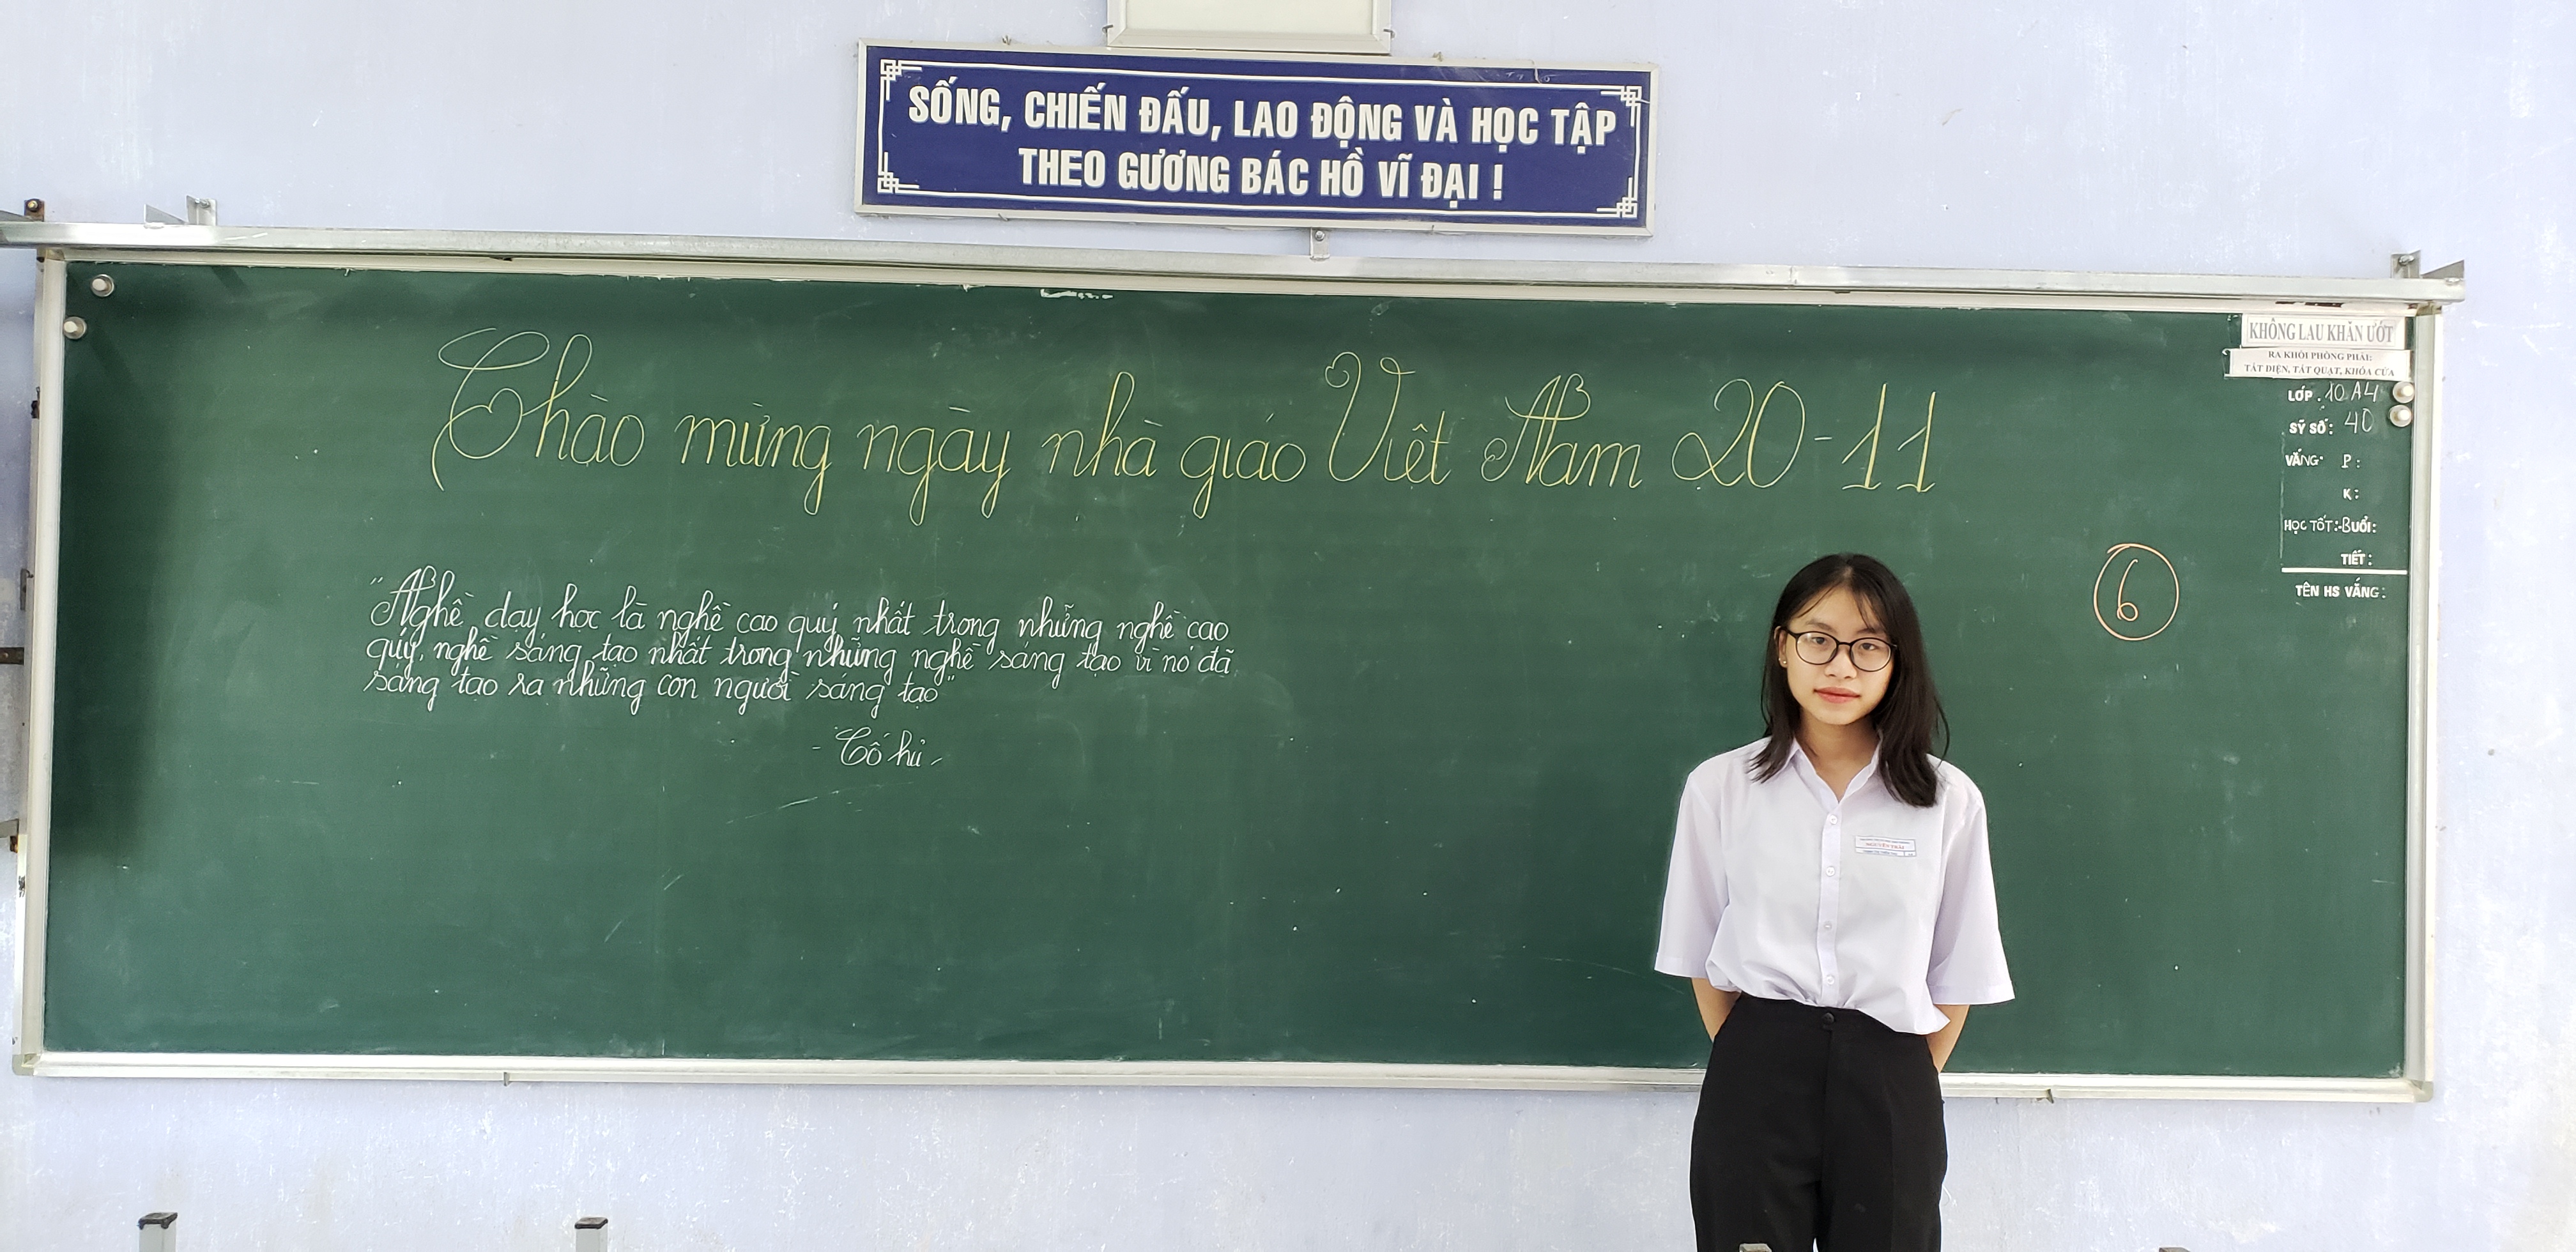 SỐNG, CHIẾN ĐẤU, LAO ĐỘNG VÀ HỌC TẬP
THEO GƯƠNG BÁC HỒ VĨ ĐẠI !
Chào mừng ngày nhà giáo Việt Nam 20-11
"Nghề dạy học là nghề cao quý nhất trong những nghề cao
quý, nghề sáng tạo nhất trong những nghề sáng tạo vì nó đã
sáng tạo ra những con người sáng tạo"
- Cố hủ -
KHÔNG LAU KHĂN ƯỚT
RA KHỎI PHÒNG PHẢI:
TẮT ĐIỆN, TẮT QUẠT, KHÓA CỬA
LỚP . 10A4
SỸ SỐ: 40
VẮNG: P :
K :
HỌC TỐT:-BUỔI:
TIẾT :
TÊN HS VẮNG:
6
NGUYỄN TRÃI